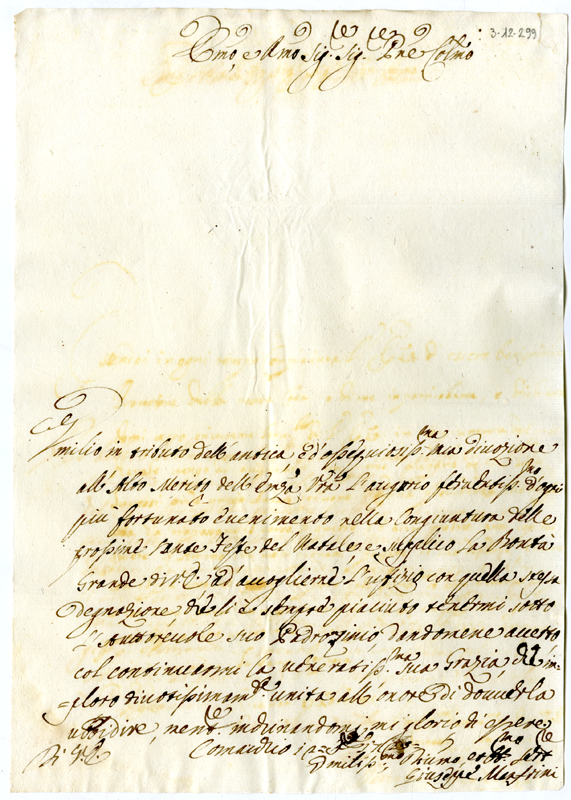 3-12-299
Emo, e Rmo Sig.re Sig.re Pne Colmo
Umilio in tributo dell'antica, ed ossequiosiss.ma mia divozione
all'Alto Merito dell'Emza Vra l'augurio ferventiss.mo d'ogni
più fortunato evenimento nella Congiuntura delle
prossime Sante Feste del Natale, e supplico la Bontà
Grande di V.E. ad accoglierne l'ufizio con quella stessa
degnazione con cui le è sempre piaciuto tenermi sotto
l'Auttorevole suo Padrozinio, dandomene
col continuarmi la veneratiss.ma sua Grazia, che im=
=ploro divotissimam.te unita all'onore di doverla
ubbidire, ment.re inchinandomi mi glorio d'essere
Di V.E.
Comacchio
Umiliss.mo Divmo, et Obb.mo
Giuseppe Manfrini